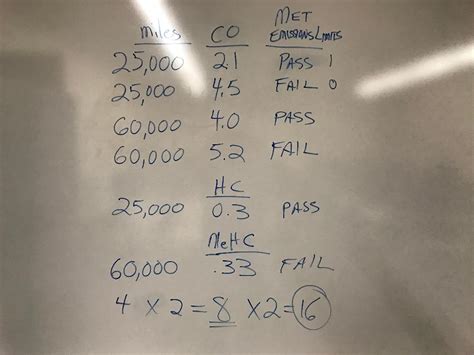 MET
miles CO EMISSIONS LIMITS
25,000 2.1 PASS 1
25,000 4.5 FAIL 0
60,000 4.0 PASS
60,000 5.2 FAIL
HC
25,000 0.3 PASS
MeHC
60,000 .33 FAIL
4 X 2 = 8 X2= 16